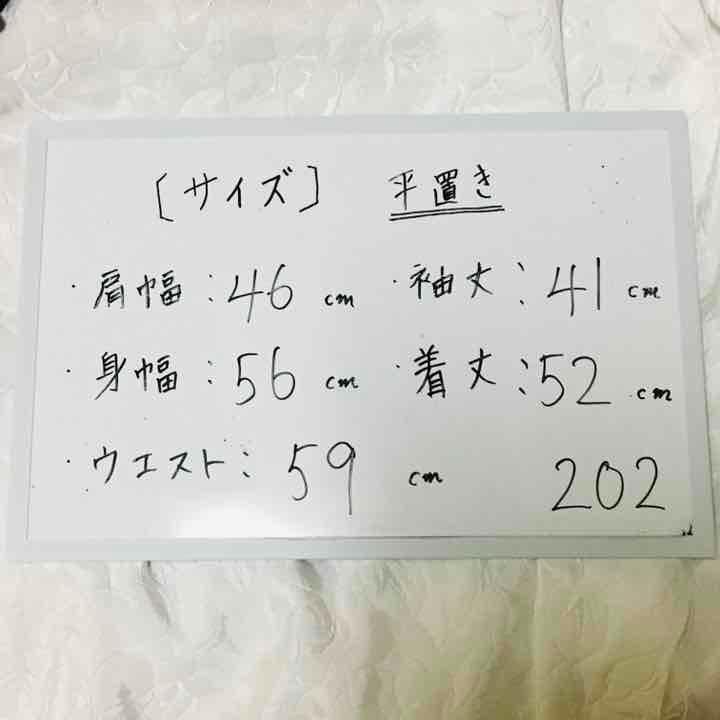 [サイズ] 平置き
・肩幅:46 cm ・袖丈:41 cm
・身幅:56 cm ・着丈:52 cm
・ウエスト:59 cm 202